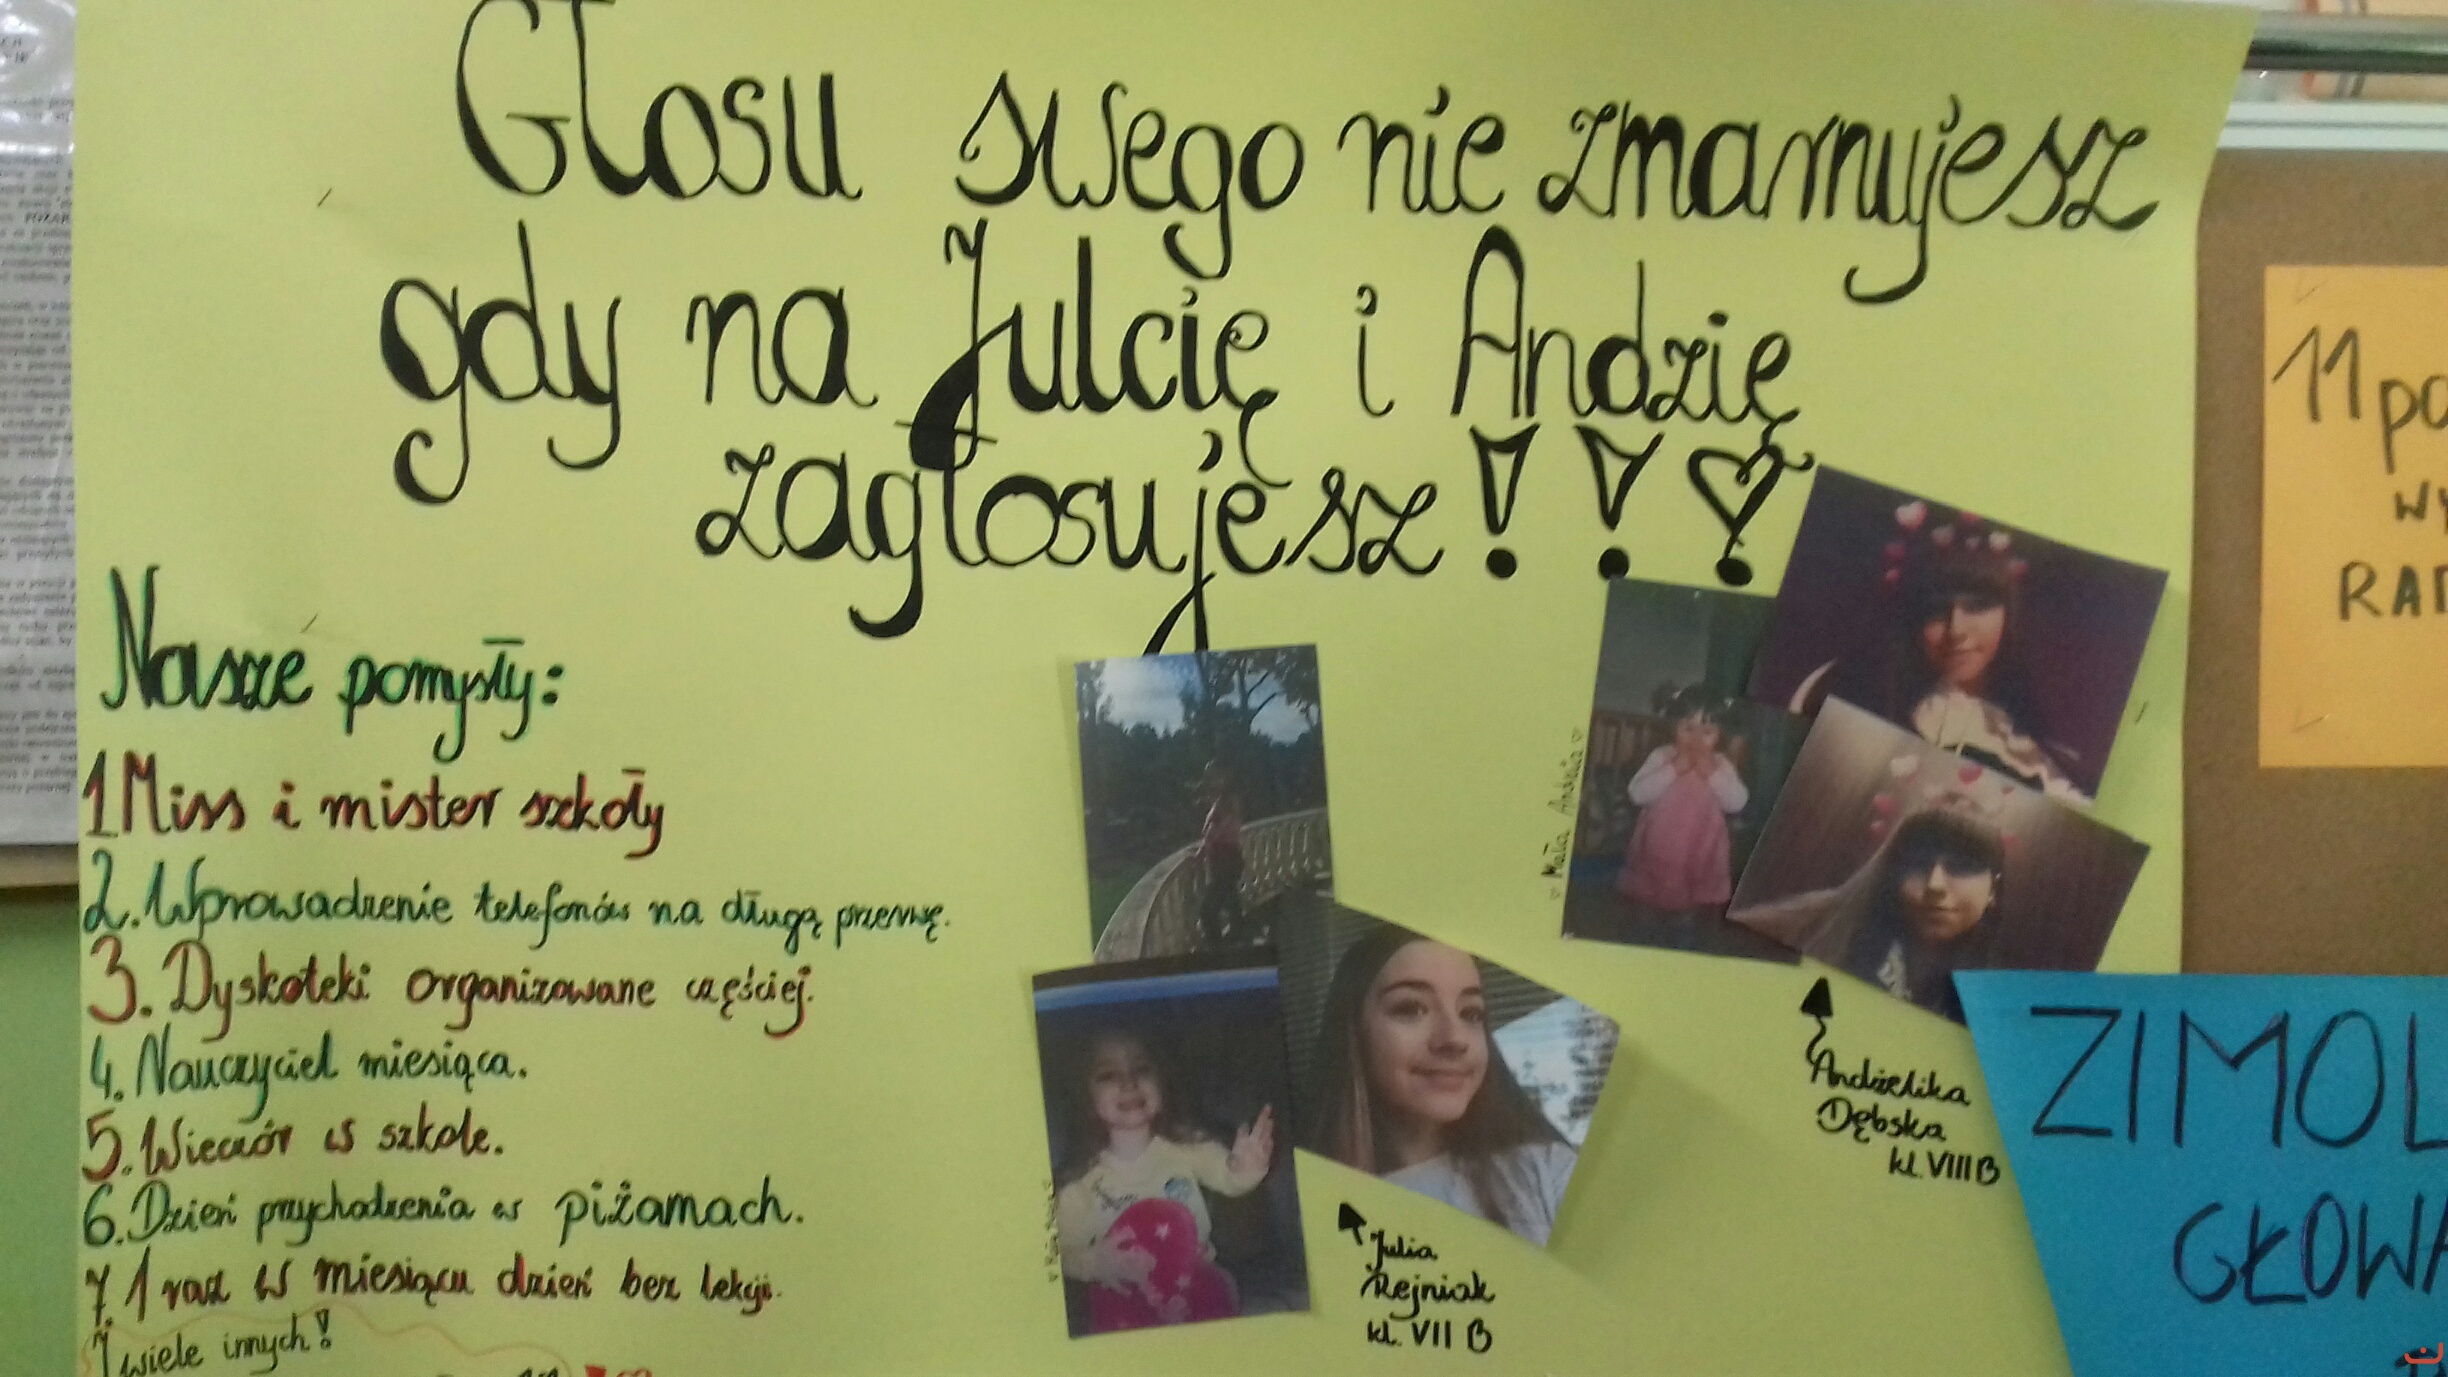 Głosu swego nie zmarnujesz
gdy na Julcię i Andzię
zagłosujesz!!
Nasze pomysły:
1 Miss i mister szkoły
2. Wprowadzenie telefonów na długą przerwę.
3. Dyskoteki organizowane częściej.
4. Nauczyciel miesiąca.
5. Wieczór w szkole.
6. Dzień przychodzenia w piżamach.
7. 1 raz w miesiącu dzień bez lekcji.
I wiele innych!
Mała Andzia
Andżelika
Dębska
kl. VIII B
Julia
Rejniak
kl. VII B
11 pa
WY
RAD
ZIMOL
GŁOWA